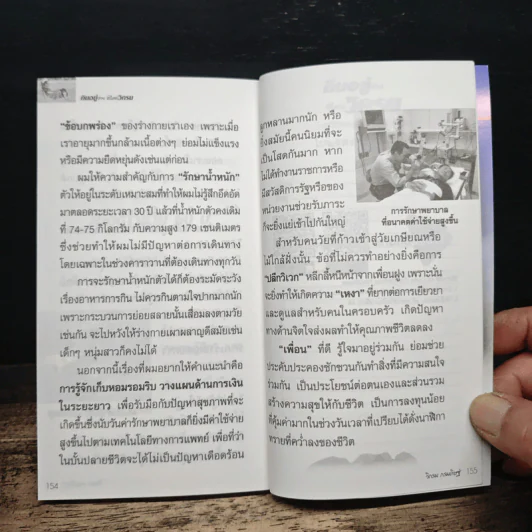 "ข้อบกพร่อง" ของร่างกายเราเอง เพราะเมื่อ
เราอายุมากขึ้นกล้ามเนื้อต่างๆ ย่อมไม่แข็งแรง
หรือมีความยืดหยุ่นดังเช่นแต่ก่อน
ผมให้ความสำคัญกับการ "รักษาน้ำหนัก"
ตัวให้อยู่ในระดับเหมาะสมที่ทำให้ผมไม่รู้สึกอึดอัด
มาตลอดระยะเวลา 30 ปี แล้วที่น้ำหนักตัวคงเดิม
ที่ 74-75 กิโลกรัม กับความสูง 179 เซนติเมตร
ซึ่งช่วยทำให้ผมไม่มีปัญหาต่อการเดินทาง
โดยเฉพาะในช่วงคาราวานที่ต้องเดินทางทุกวัน
การจะรักษาน้ำหนักตัวได้ก็ต้องระมัดระวัง
เรื่องอาหารการกิน ไม่ควรกินตามใจปากมากนัก
เพราะกระบวนการย่อยสลายนั้นเสื่อมลงตามวัย
เช่นกัน จะไปหวังให้ร่างกายเผาผลาญดีสมัยเช่น
เด็กๆ หนุ่มสาวก็คงไม่ได้
นอกจากนี้เรื่องที่ผมอยากให้คำแนะนำคือ
การรู้จักเก็บหอมรอมริบ วางแผนด้านการเงิน
ในระยะยาว เพื่อรับมือกับปัญหาสุขภาพที่จะ
เกิดขึ้นซึ่งนับวันค่ารักษาพยาบาลก็ยิ่งมีค่าใช้จ่าย
สูงขึ้นไปตามเทคโนโลยีทางการแพทย์ เพื่อที่ว่า
ในบั้นปลายชีวิตจะได้ไม่เป็นปัญหาเดือดร้อน
154
ลูกหลานมากนัก หรือ
ยิ่งสมัยนี้คนนิยมที่จะ
เป็นโสดกันมาก หาก
ไม่ได้ทำงานราชการหรือ
มีสวัสดิการรัฐหรือของ
หน่วยงานช่วยรับภาระ
ก็จะยิ่งแย่เข้าไปกันใหญ่
การรักษาพยาบาล
ที่อนาคตค่าใช้จ่ายสูงขึ้น
สำหรับคนวัยที่ก้าวเข้าสู่วัยเกษียณหรือ
ใกล้ฝั่งนั้น ข้อที่ไม่ควรทำอย่างยิ่งคือการ
"ปลีกวิเวก" หลีกลี้หนีหน้าจากเพื่อนฝูง เพราะนั่น
จะยิ่งทำให้เกิดความ "เหงา" ที่ยากต่อการเยียวยา
และดูแลสำหรับคนในครอบครัว เกิดปัญหา
ทางด้านจิตใจส่งผลทำให้คุณภาพชีวิตลดลง
"เพื่อน" ที่ดี รู้ใจมาอยู่ร่วมกัน ย่อมช่วย
ประคับประคองชักชวนกันทำสิ่งที่มีความสนใจ
ร่วมกัน เป็นประโยชน์ต่อตนเองและส่วนรวม
สร้างความสุขให้กับชีวิต เป็นการลงทุนน้อย
ที่คุ้มค่ามากในช่วงวันเวลาที่เปรียบได้ดั่งนาฬิกา
ทรายที่คว่ำลงของชีวิต
155